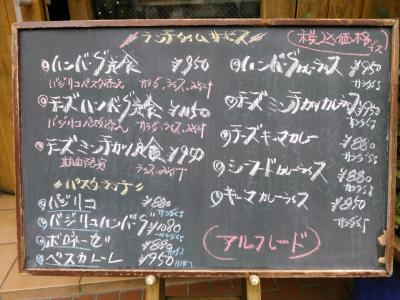 ランチタイムサービス
(税込価格です)
ハンバーグ定食 ¥950
バジリコパスタ添え サラダ、ライス、みそ汁
チーズハンバーグ定食 ¥1050
バジリコパスタ添え サラダ、ライス、みそ汁
チーズミンチカツ定食 ¥950
ライス、みそ汁
パスタランチ
バジリコ ¥880
サラダ付
バジリコハンバーグ ¥1080
サラダ付
ボロネーゼ ¥880
サラダ付
ペスカトーレ ¥950
サラダ付
ハンバーグカレーライス ¥950
サラダ付
チーズミンチカツカレーライス ¥950
サラダ付
チーズキーマカレー ¥880
サラダ付
シーフードカレーライス ¥880
サラダ付
キーマカレーライス ¥850
サラダ付
(アルフレード)